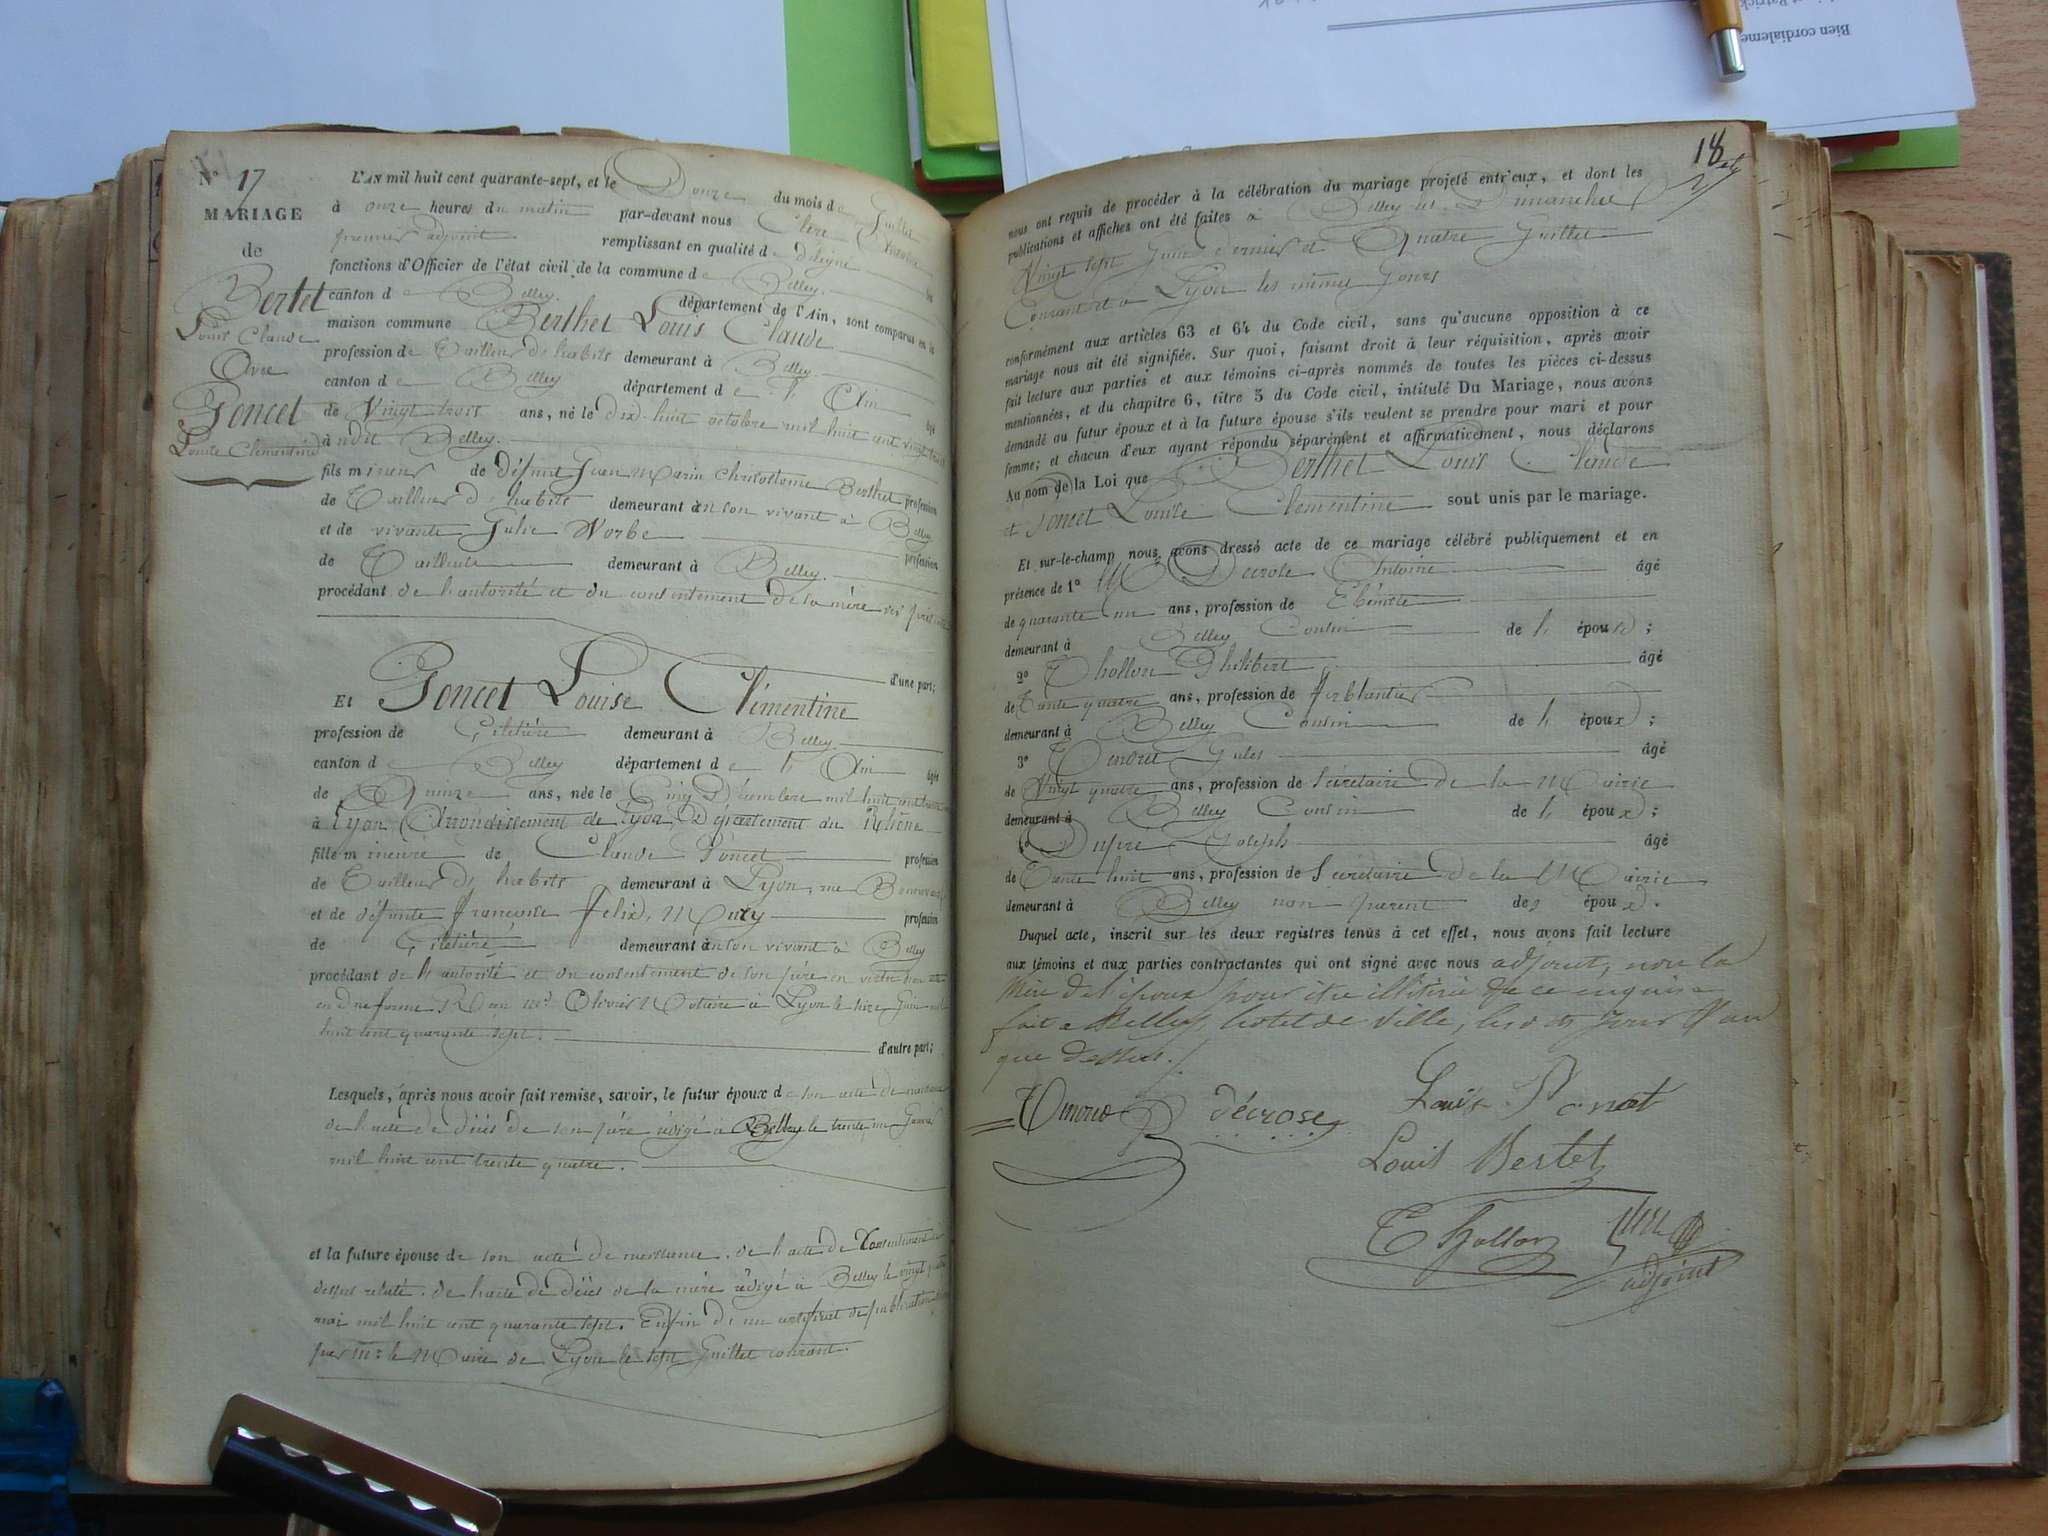 Bien cordialeme
N° 17
MARIAGE
de
Bertet
Louis Claude
Avec
Poncet
Louise Clémentine
L'AN mil huit cent quarante-sept, et le Douze du mois de Juillet
à onze heures du matin par-devant nous Clerc Antoine
premier adjoint remplissant en qualité de délégué les
fonctions d'Officier de l'état civil de la commune de Belley
canton de Belley département de l'Ain, sont comparus en la
maison commune Berthet Louis Claude
profession de Tailleur d'habits demeurant à Belley
canton de Belley département de l'Ain âgé
de Vingt trois ans, né le dix huit octobre mil huit cent vingt trois
à udit Belley
fils mineur de défunt Jean Marie Chrisostome Berthet profession
de Tailleur d'habits demeurant en son vivant à Belley
et de vivante Julie Vorbe profession
de Tailleuse demeurant à Belley
procédant de l'autorité et du consentement de sa mère ici présente
d'une part;
Et Poncet Louise Clémentine
profession de Giletière demeurant à Belley
canton de Belley département de l'Ain âgée
de Quinze ans, née le Cinq Décembre mil huit cent
à Lyon, Arrondissement de Lyon, Département du Rhône
fille mineure de Claude Poncet profession
de Tailleur d'habits demeurant à Lyon, rue
et de défunte Françoise Félix, Muzy profession
de Giletière demeurant en son vivant à Belley
procédant de l'autorité et du consentement de son père en vertu d'un acte
en due forme Reçu Mre Notaire à Lyon le Juin mil
huit cent quarante sept.
d'autre part;
Lesquels, après nous avoir fait remise, savoir, le futur époux de son acte de naissance
de l'acte de décès de son père rédigé à Belley le trente un Janvier
mil huit cent trente quatre.
et la future épouse de son acte de naissance, de l'acte de Consentement ci
dessus relaté, de l'acte de décès de sa mère rédigé à Belley le vingt quatre
mai mil huit cent quarante sept. Enfin d'un certificat de publication
par Mr le Maire de Lyon le sept Juillet courant.
18
nous ont requis de procéder à la célébration du mariage projeté entr'eux, et dont les
publications et affiches ont été faites à Belley les Dimanches
Vingt sept Juin dernier et Quatre Juillet
Courant et à Lyon les mêmes Jours
conformément aux articles 63 et 64 du Code civil, sans qu'aucune opposition à ce
mariage nous ait été signifiée. Sur quoi, faisant droit à leur réquisition, après avoir
fait lecture aux parties et aux témoins ci-après nommés de toutes les pièces ci-dessus
mentionnées, et du chapitre 6, titre 5 du Code civil, intitulé Du Mariage, nous avons
demandé au futur époux et à la future épouse s'ils veulent se prendre pour mari et pour
femme; et chacun d'eux ayant répondu séparément et affirmativement, nous déclarons
Au nom de la Loi que Berthet Louis Claude
et Poncet Louise Clementine sont unis par le mariage.
Et sur-le-champ nous avons dressé acte de ce mariage célébré publiquement et en
présence de 1° Decrose Antoine âgé
de quarante un ans, profession de Ebéniste
demeurant à Belley Cousin de l'époux;
2° Thollon Philibert âgé
de Trente quatre ans, profession de Ferblantier
demeurant à Belley Cousin de l'époux;
3° Tendret Jules âgé
de Vingt quatre ans, profession de Secrétaire de la Mairie
demeurant à Belley Cousin de l'époux;
4° Dupre Joseph âgé
de Trente huit ans, profession de Secrétaire de la Mairie
demeurant à Belley non parent des époux.
Duquel acte, inscrit sur les deux registres tenus à cet effet, nous avons fait lecture
aux témoins et aux parties contractantes qui ont signé avec nous adjoint, non la
Mère de l'époux pour être illitérée de ce enquise
fait à Belley, hotel de Ville, les dits Jour & an
que dessus.
décrose
Louis Bertet
Thollon
adjoint